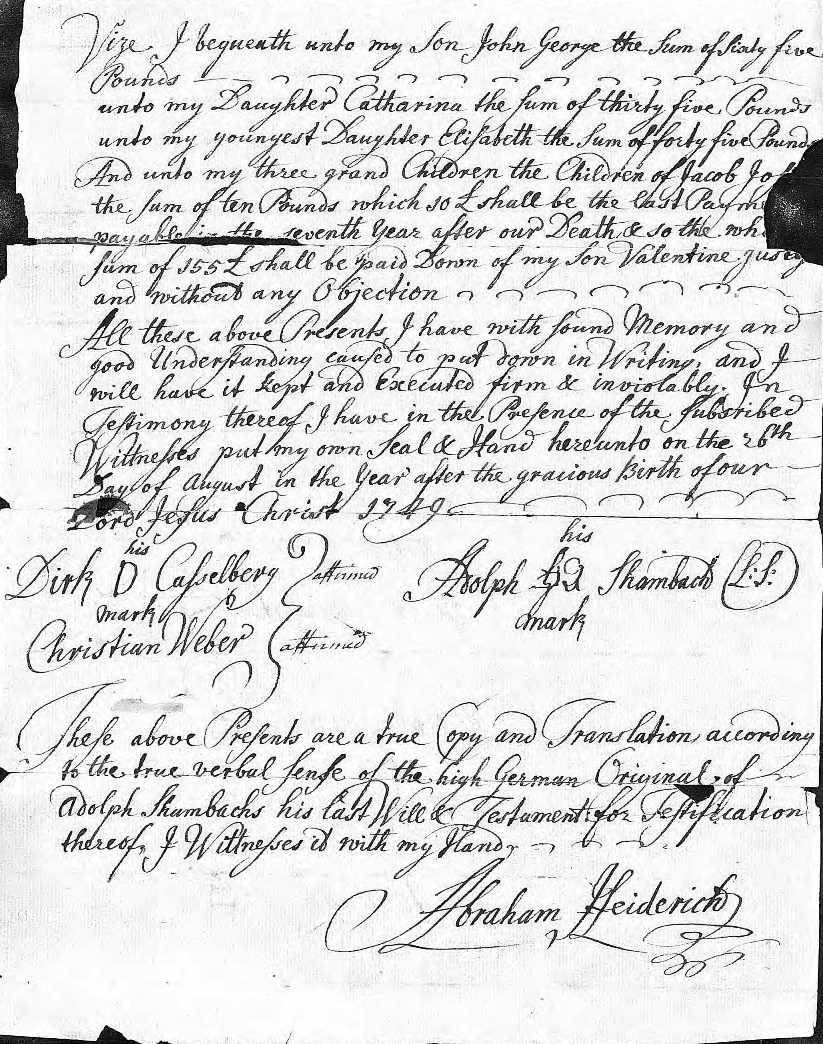 Vize I bequeath unto my Son John George the Sum of Sixty five
Pounds
unto my Daughter Catharina the sum of thirty five Pounds
unto my youngest Daughter Elisabeth the Sum of forty five Pounds
And unto my three grand Children the Children of Jacob
the sum of ten Pounds which 10 £ shall be the last
payable in the seventh Year after our Death & so the
sum of 155 £ shall be paid Down of my Son Valentine
and without any Objection
All these above Presents, I have with sound Memory and
good Understanding caused to put down in Writing, and I
will have it kept and Executed firm & inviolably. In
Testimony thereof I have in the Presence of the Subsribed
Wittnesses put my own Seal & Hand hereunto on the 26th
Day of August in the Year after the gracious Birth of our
Lord Jesus Christ 1749
his
his
Dirk D Casselberg affirmed
Adolph Shambach (L:S:)
mark
mark
Christian Weber affirmed
These above Presents are a true Copy and Translation according
to the true verbal sense of the high German Original of
Adolph Shambachs his last Will & Testament for Testification
thereof, I Wittnesses it with my Hand
Abraham Heiderich